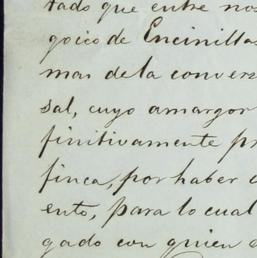 tado que entre nos
goico de Encinillas
mas de la convers
sal, cuyo amargor
finitivamente pr
finca, por haber
ento, para lo cual
gado con quien